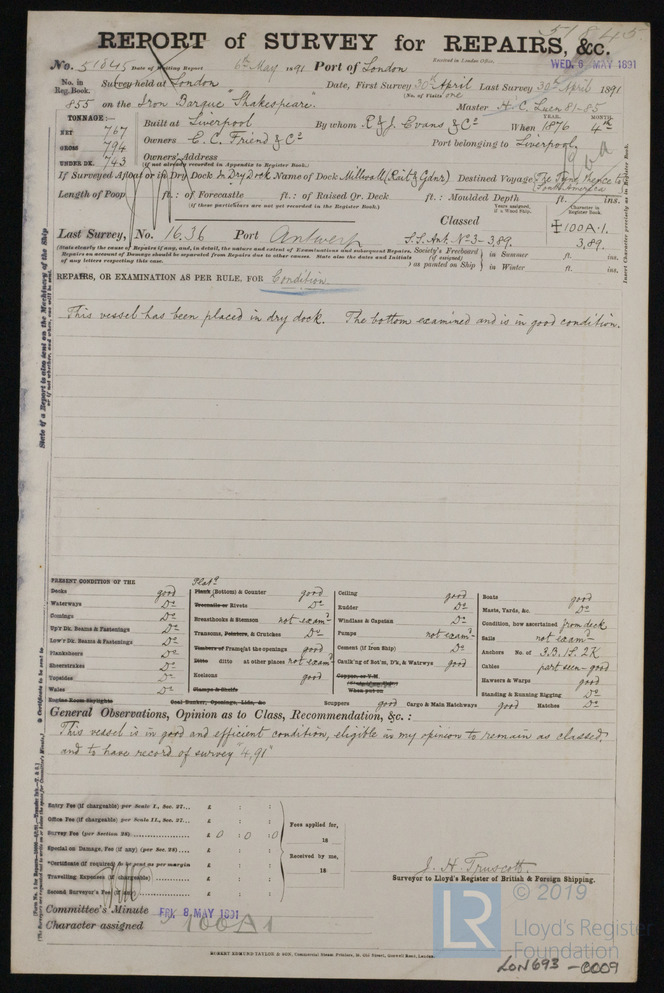 51845
REPORT of SURVEY for REPAIRS, &c.
No. 51845 Date of Writing Report 6th May 1891 Port of London Received in London Office, WED. 6 MAY 1891
No. in Reg. Book. Survey held at London Date, First Survey 30th April Last Survey 30th April 1891
(No. of Visits one
855 on the Iron Barque "Shakespeare" Master H. C. Luen 81-85
TONNAGE:—
NET 767
GROSS 794
UNDER DK. 743
Built at Liverpool By whom R & J. Evans & Co When 1876 MONTH. 4th
Owners E. C. Friend & Co Port belonging to Liverpool
Owners' Address
(If not already recorded in Appendix to Register Book.)
If Surveyed Afloat or in Dry Dock In Dry Dock Name of Dock Millwall Destined Voyage The Tyne thence to South America
Length of Poop ft.: of Forecastle ft.: of Raised Qr. Deck ft.: Moulded Depth ft. ins.
(If these particulars are not yet recorded in the Register Book.)
Years assigned, if a Wood Ship.
Character in Register Book.
Last Survey, No. 16,36 Port Antwerp Classed
S.S. Ant. No 3-3,89.
✠100A.1.
3,89.
(State clearly the cause of Repairs if any, and, in detail, the nature and extent of Examinations and subsequent Repairs.
Repairs on account of Damage should be separated from Repairs due to other causes. State also the dates and Initials of any letters respecting this case.
Society's Freeboard (if assigned) as painted on Ship in Summer ft. ins.
in Winter ft. ins.
REPAIRS, OR EXAMINATION AS PER RULE, FOR Condition.
This vessel has been placed in dry dock. The bottom examined and is in good condition.
PRESENT CONDITION OF THE
Decks good
Waterways Do
Comings Do
Up'r Dk. Beams & Fastenings Do
Low'r Dk. Beams & Fastenings Do
Planksheers Do
Sheerstrakes Do
Topsides Do
Wales Do
Engine Room Skylights
Plate
Plank (Bottom) & Counter good
Treenails or Rivets Do
Breasthooks & Stemson not examd
Transoms, Pointers, & Crutches Do
Timbers of Frame at the openings good
Ditto ditto at other places not examd
Keelsons good
Clamps & Shelfs
Coal Bunker, Openings, Lids, &c
Ceiling good
Rudder Do
Windlass & Capstan Do
Pumps not examd
Cement (if Iron Ship) Do
Caulk'ng of Bot'm, D'k, & Watrwys good
Copper, or Y.M.
When put on
Scuppers good Cargo & Main Hatchways good Hatches Do
Boats good
Masts, Yards, &c. Do
Condition, how ascertained from deck
Sails not examd
Anchors No. of 3.B. 1S. 2K
Cables part seen - good
Hawsers & Warps good
Standing & Running Rigging Do
General Observations, Opinion as to Class, Recommendation, &c.:
This vessel is in good and efficient condition, eligible in my opinion to remain as classed,
and to have record of survey "4,91"
Entry Fee (if chargeable) per Scale I., Sec. 27... £ : :
Office Fee (if chargeable) per Scale II., Sec. 27... £ : :
Survey Fee (per Section 28) £ 0 : 0 : 0
Special on Damage, Fee (if any) (per Sec. 28) £ : :
*Certificate (if required) to be sent as per margin £ : :
Travelling Expenses (if chargeable) £ : :
Second Surveyor's Fee (if any) £ : :
Fees applied for,
18
Received by me,
18
J. H. Truscott.
Surveyor to Lloyd's Register of British & Foreign Shipping.
Committee's Minute FRI. 8 MAY 1891
Character assigned 100A1
ROBERT EDMUND TAYLOR & SON, Commercial Steam Printers, 19, Old Street, Goswell Road, London.
LR
© 2019
Lloyd's Register
Foundation
LON693-0009
State if a Report is also sent on the Machinery of the Ship
Insert Character precisely as in Register Book.